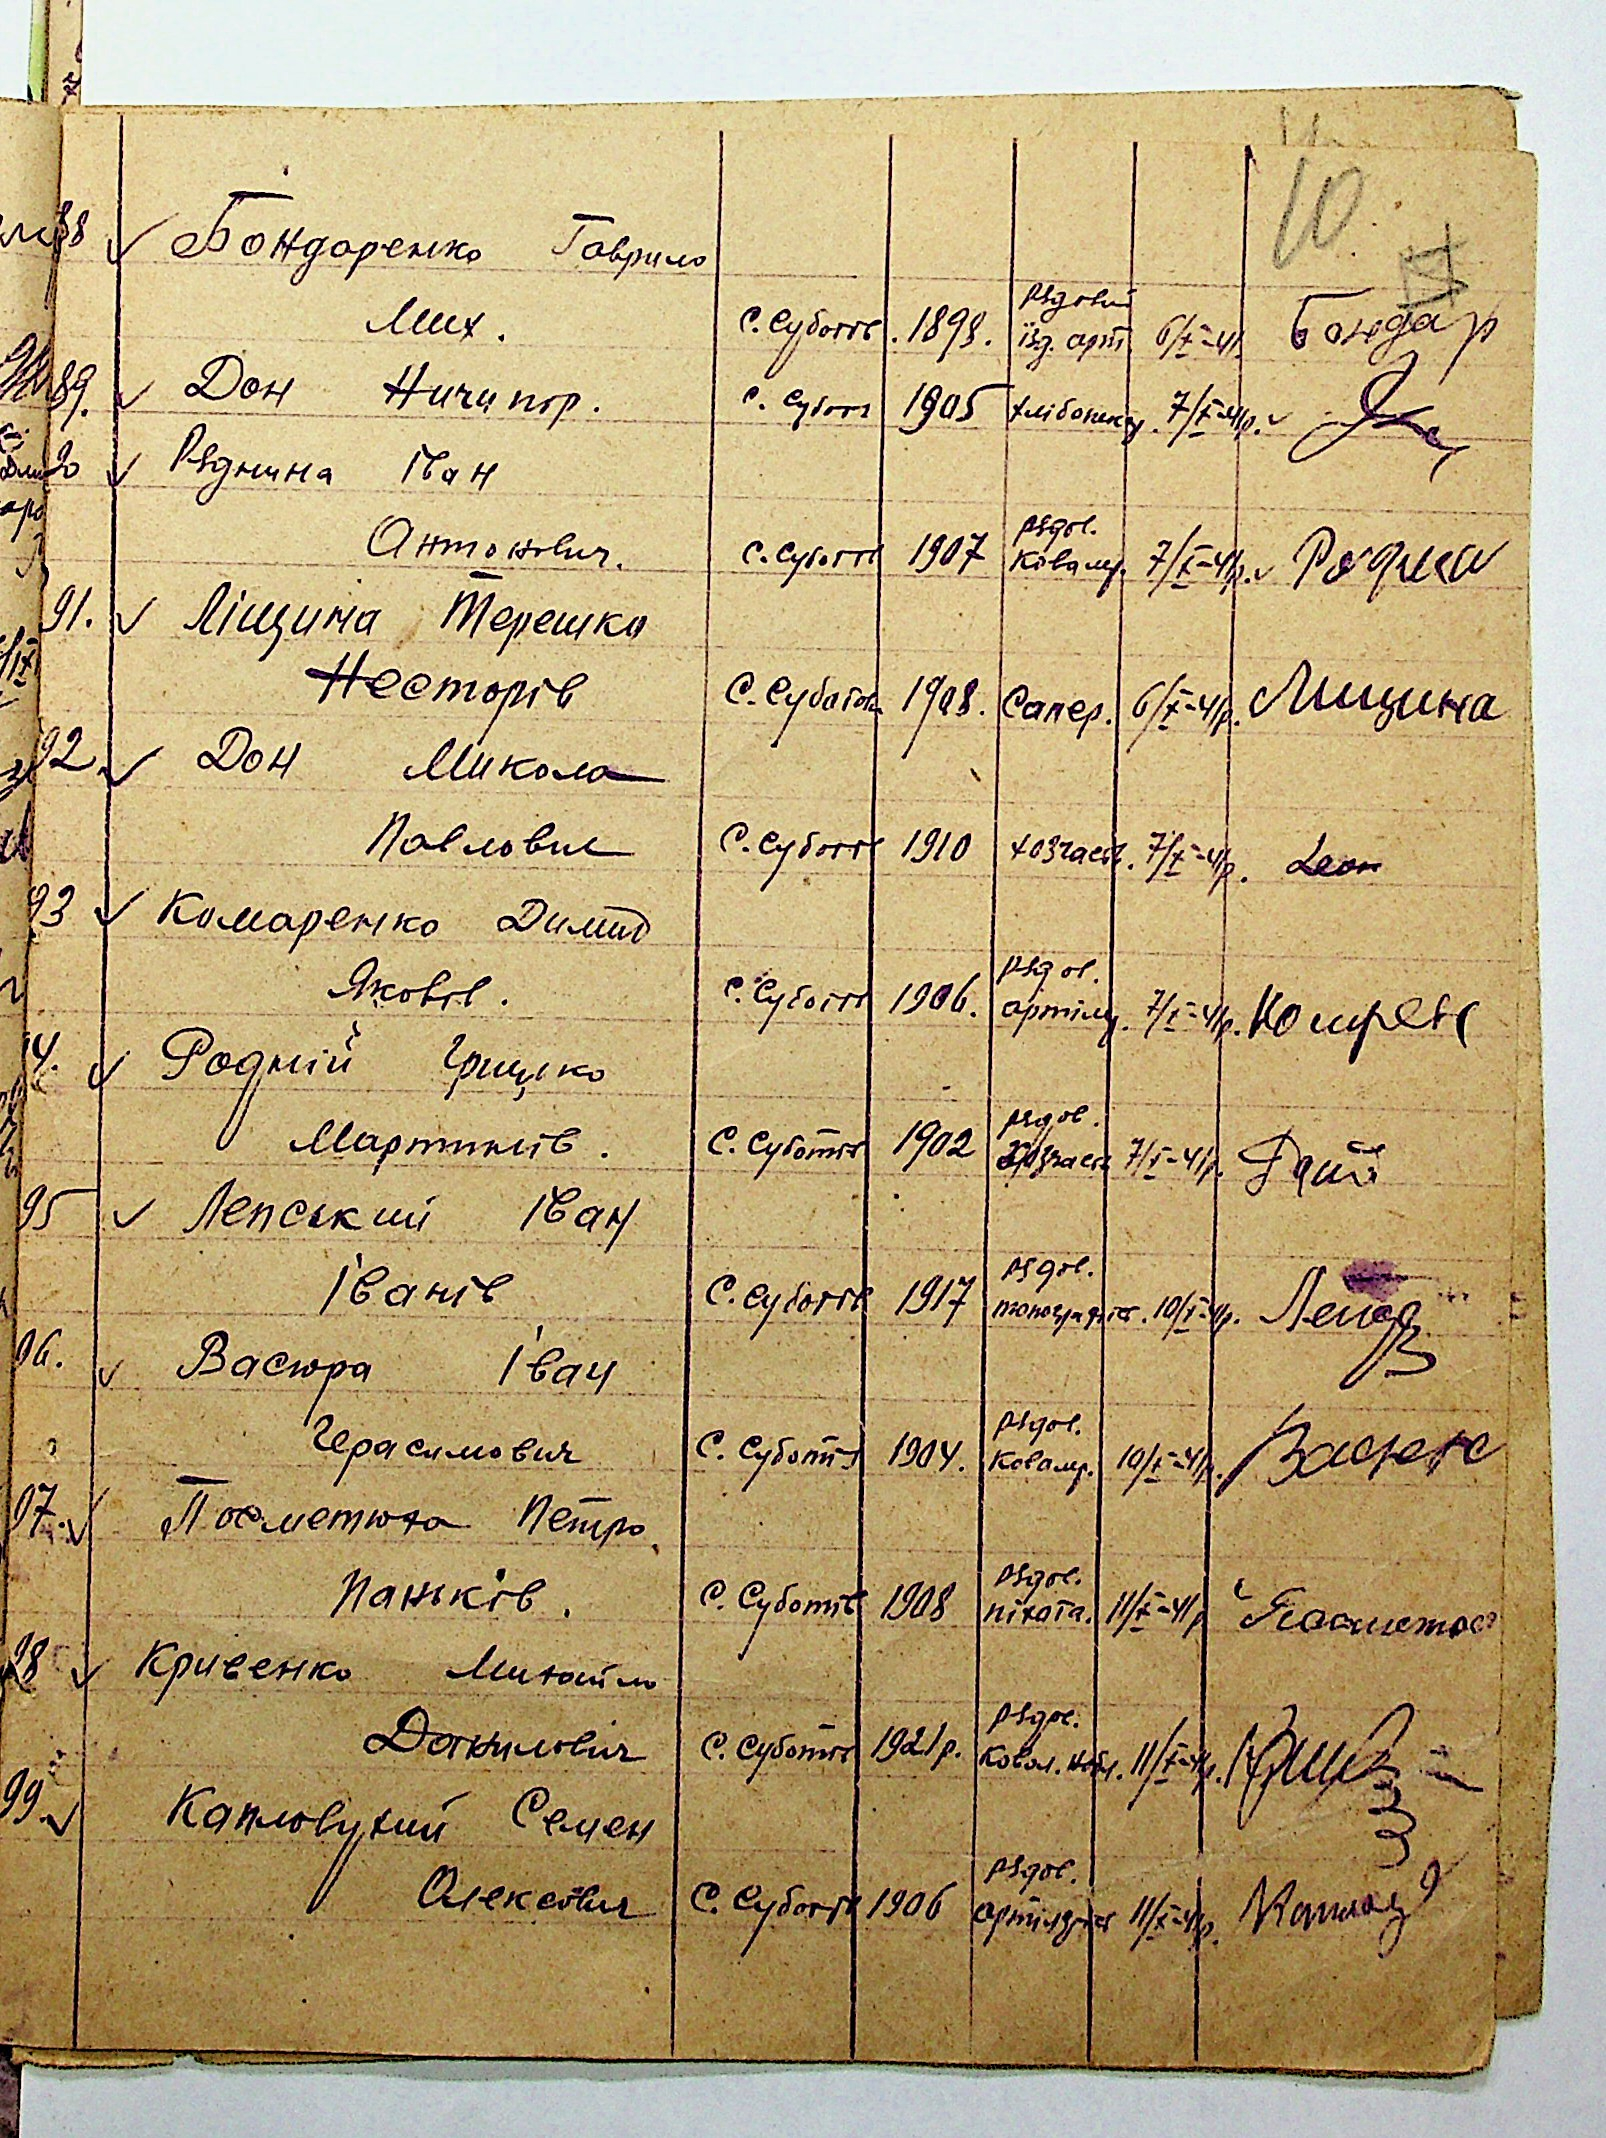 10
88 Бондаренко Гаврило
Мих. с. Суботів. 1898. рядовий їзд. арт. 6/X-41 Бондар
89. Дон Ничипір. с. Субот 1905 хлібопекар. 7/X-41р.
90 Родина Іван
Антонович. с. Суботів 1907 рядов. Кавалер. 7/X-41р.
91. Ліщина Терешко
Несторів с. Суботів 1908. Сапер. 6/X-41р. Лищина
92. Дон Микола
Павлович с. Суботів 1910 хозчасть. 7/X-41р.
93 Комаренко Димид
Яковів. с. Суботів 1906. рядов. артилер. 7/X-41р.
94. Родній Грицько
Мартинів. с. Суботів 1902 рядов. Хозчасть 7/X-41р.
95 Лепський Іван
Іванів с. Суботів 1917 рядов. 10/X-41р.
96. Васюра Іван
Герасимович с. Суботів 1904. рядов. Кавалер. 10/X-41р.
97. Посметюха Петро
Паньків. с. Суботів 1908 рядов. піхота. 11/X-41р
98 Кривенко Михайло
Данилович с. Суботів 1921р. рядов. 11/X-41р.
99. Капловухий Семен
Олексович с. Суботів 1906 рядов. 11/X-41р.